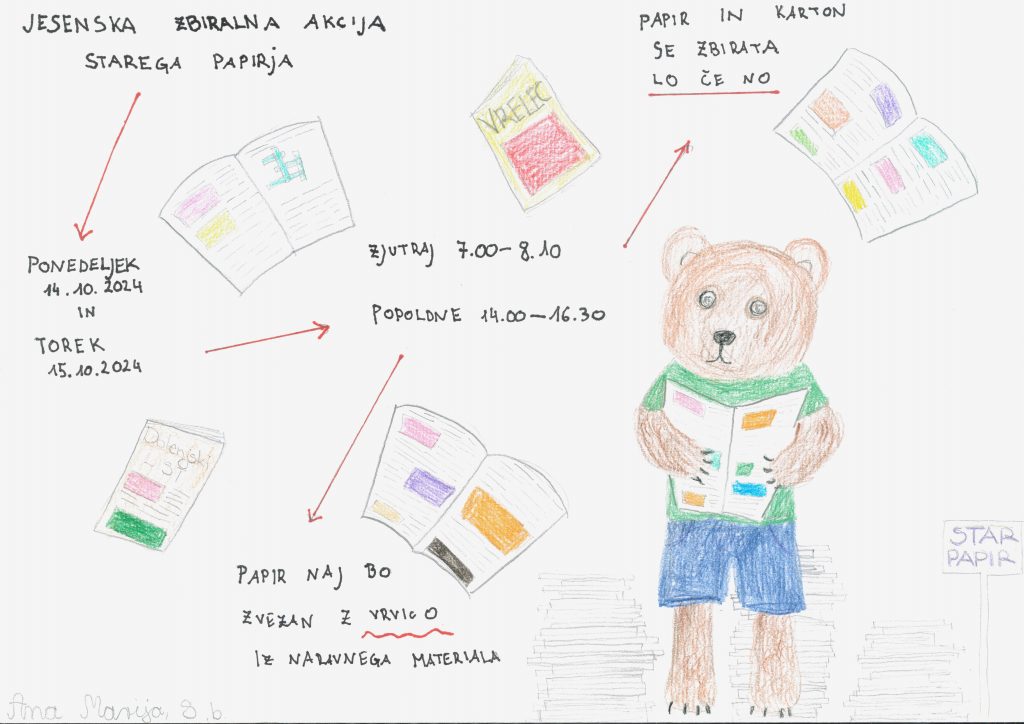 JESENSKA ZBIRALNA AKCIJA
STAREGA PAPIRJA
PONEDELJEK
14.10.2024
IN
TOREK
15.10.2024
ZJUTRAJ 7.00-8.10
POPOLDNE 14.00-16.30
PAPIR IN KARTON
SE ZBIRATA
LO ČE NO
PAPIR NAJ BO
ZVEZAN Z VRVICO
IZ NARAVNEGA MATERIALA
VRELEC
Dolenjski
list
STAR
PAPIR
Ana Marija, 8.b